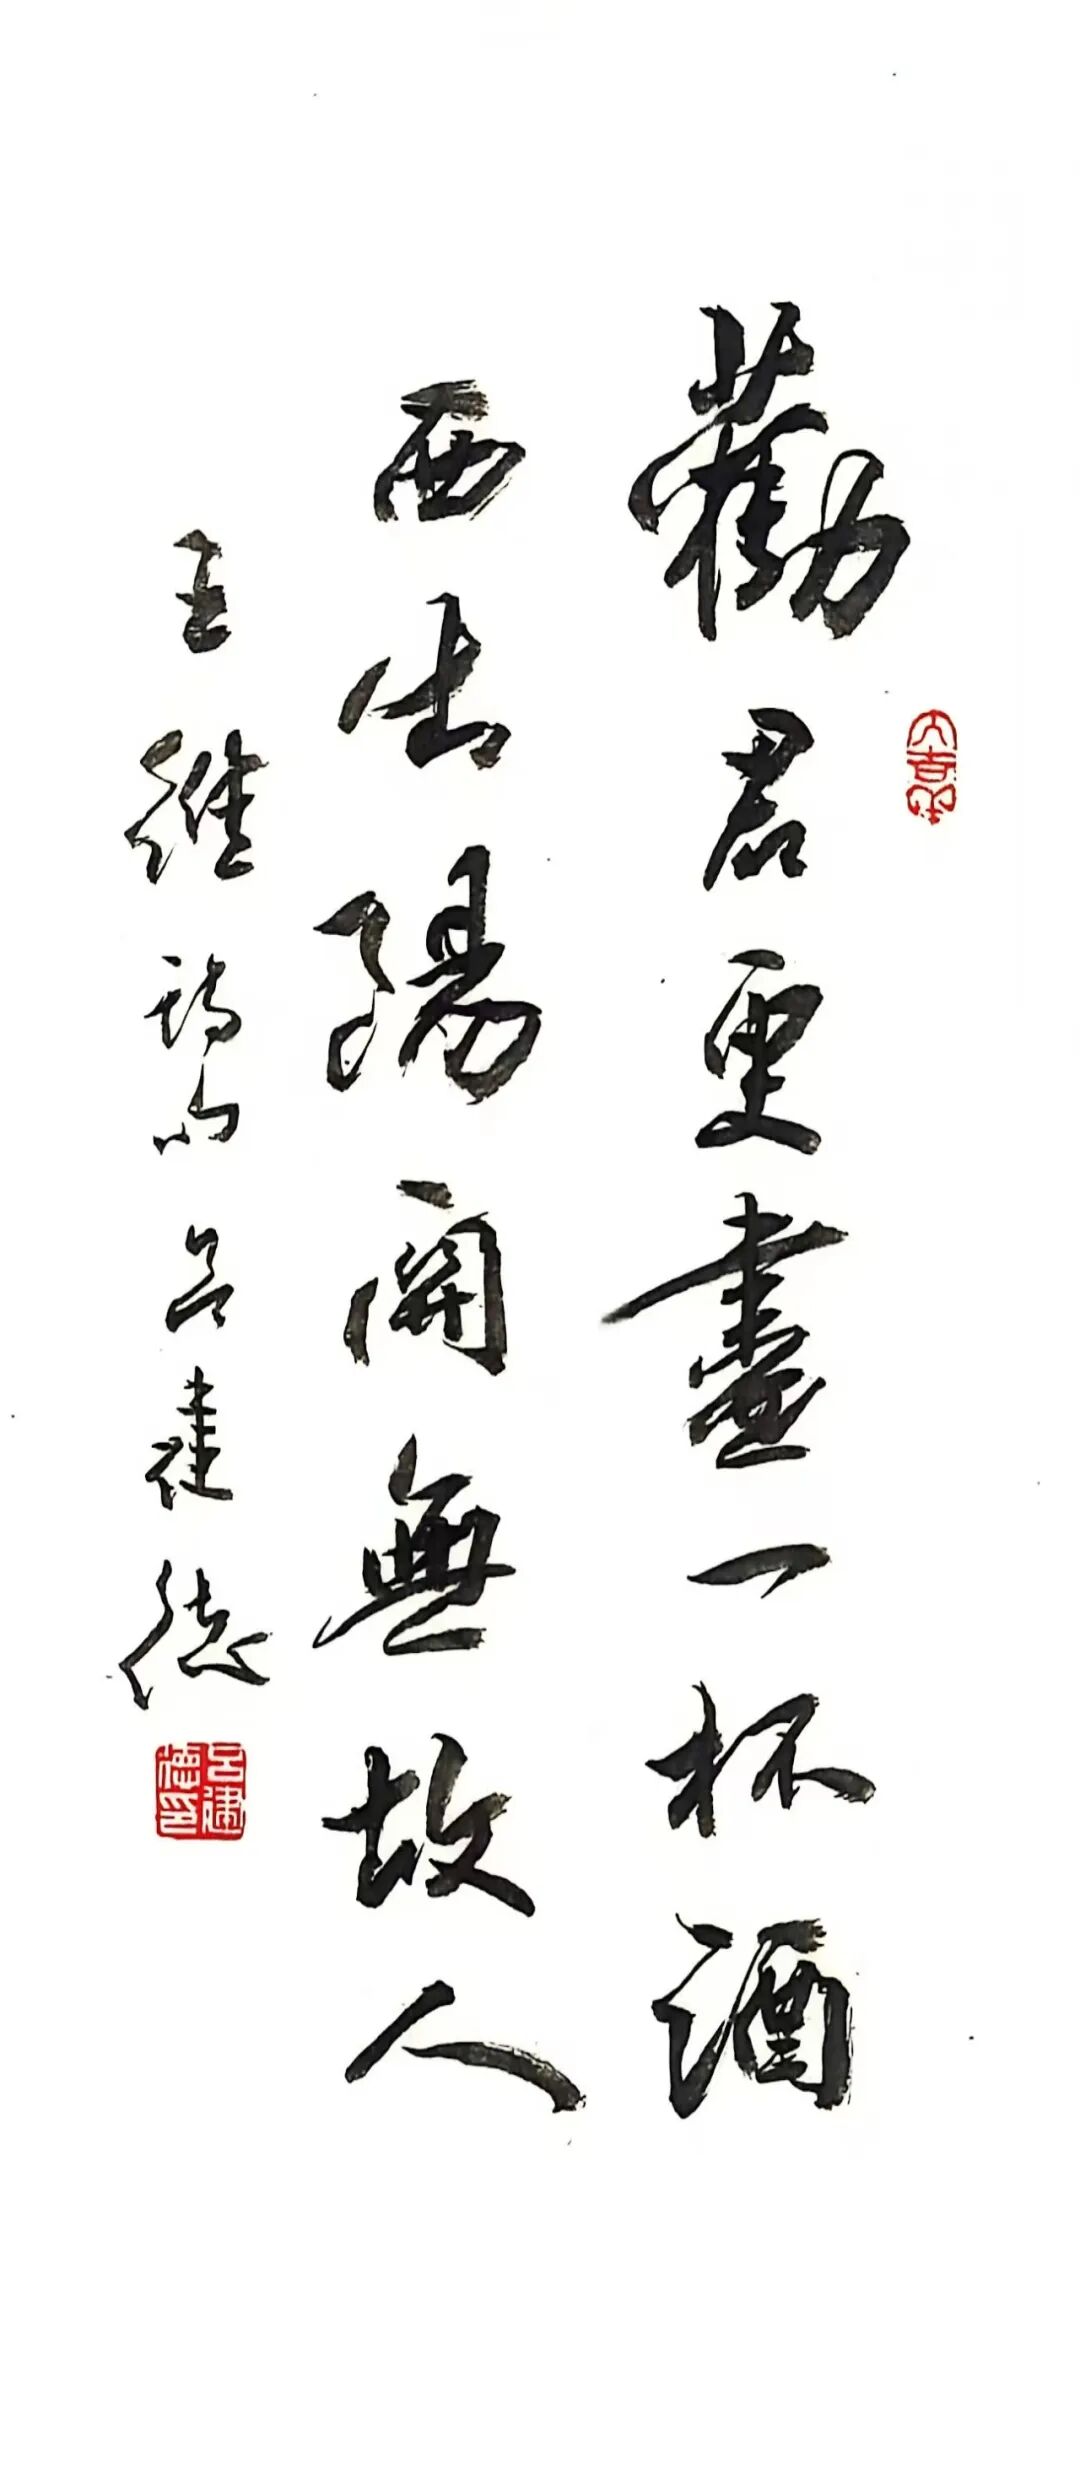 勸君更盡一杯酒
西出陽關無故人
王維詩 吕建德
大吉
吕建德印